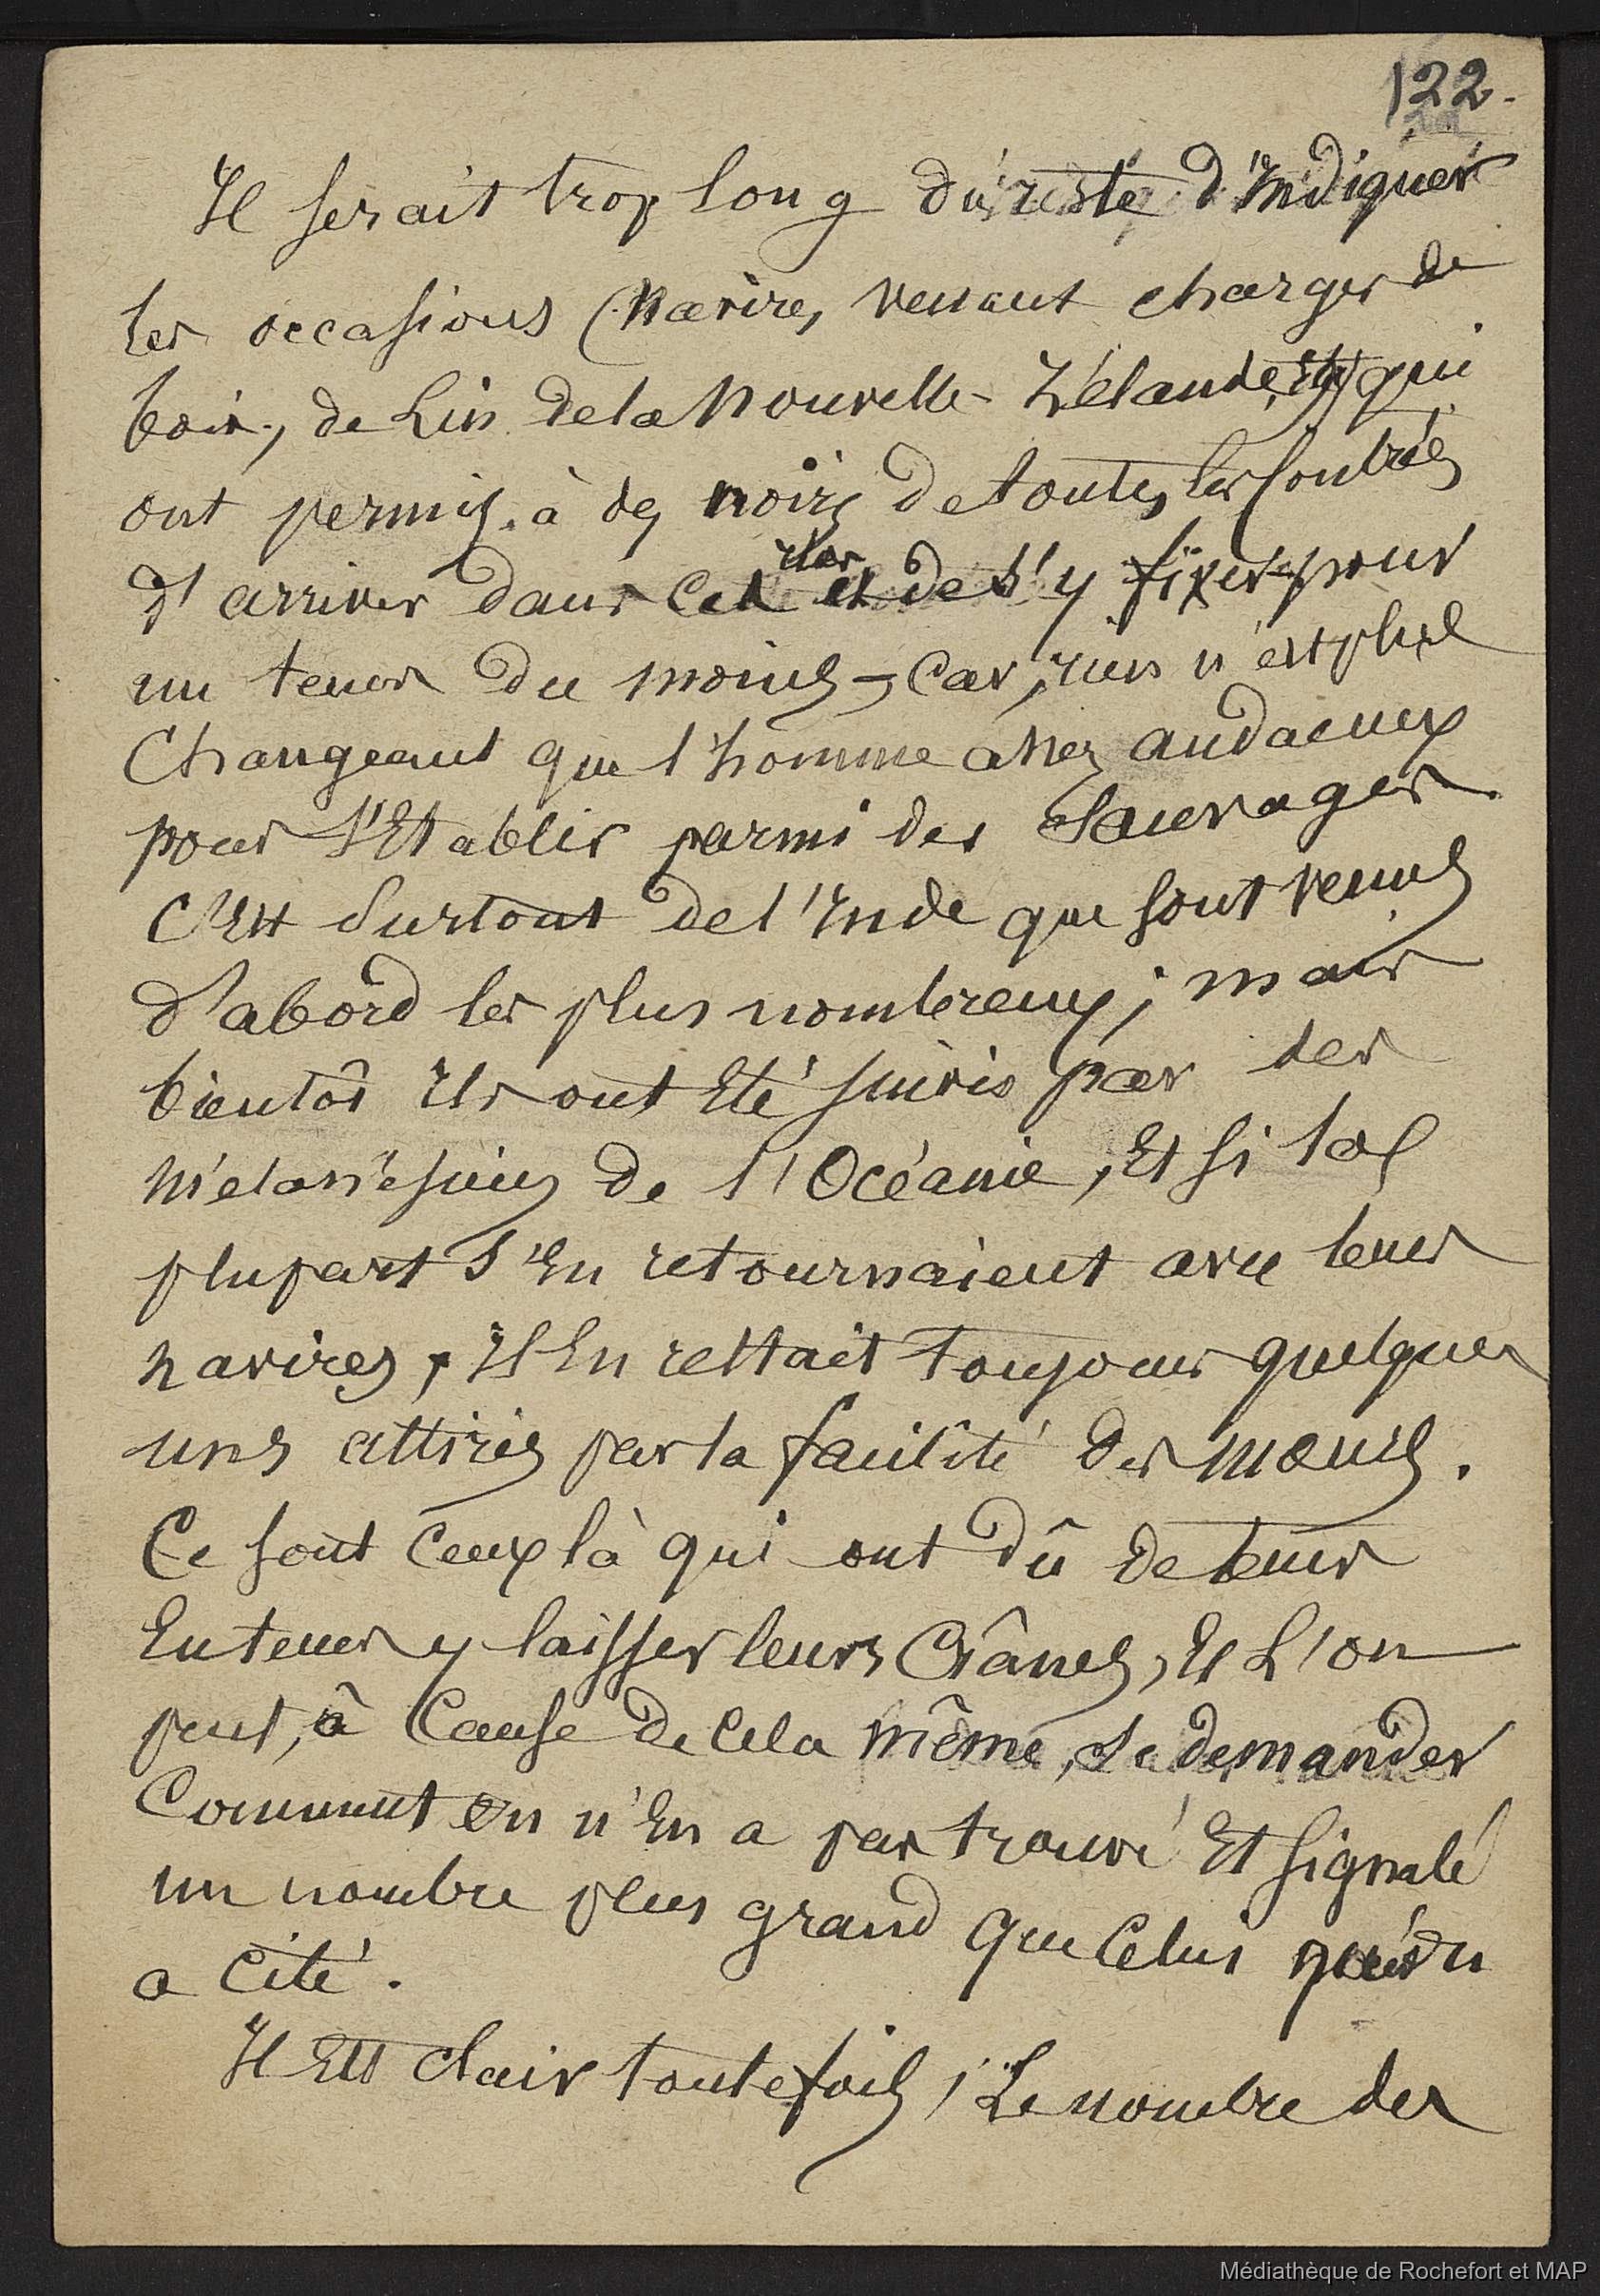 122.
Il serait trop long du reste d'Indiquer
les occasions (Navires, venant charger de
bois, de Lin de la Nouvelle-Zélande, Etc) qui
ont permis à des noirs de toutes les Contrées
d'arriver dans Ces iles et de s'y fixer pour
un temps du moins - Car, rien n'est plus
Changeant que l'homme assez audacieux
pour s'Etablir parmi des Sauvages
C'Est Surtout de l'Inde que sont venus
d'abord les plus nombreux; mais
bientôt Ils ont Eté suivis par des
Mélanésiens de l'Océanie, Et si la
plupart s'En retournaient avec leurs
navires, Il En restait Toujours quelques
uns attirés par la facilité des mœurs.
Ce sont Ceux là qui ont dû de temps
En temps y laisser leurs Crânes, Et L'on
peut, à Cause de Cela même, se demander
Comment on n'En a pas trouvé Et signalé
un nombre plus grand que Celui qu'on
a Cité.
Il Est Clair toutefois, Le nombre des
Médiathèque de Rochefort et MAP